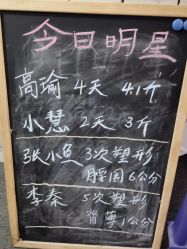 今日明星
高瑜 4天 4.1斤
小慧 2天 3斤
张小鱼 3次塑形
腰围6公分
李秦 5次塑形
背薄1公分